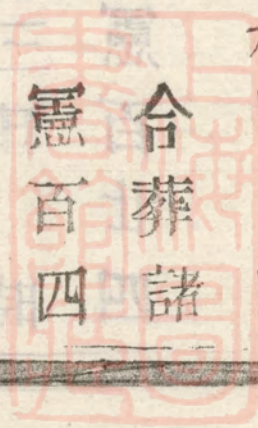 合葬諸
憲百四